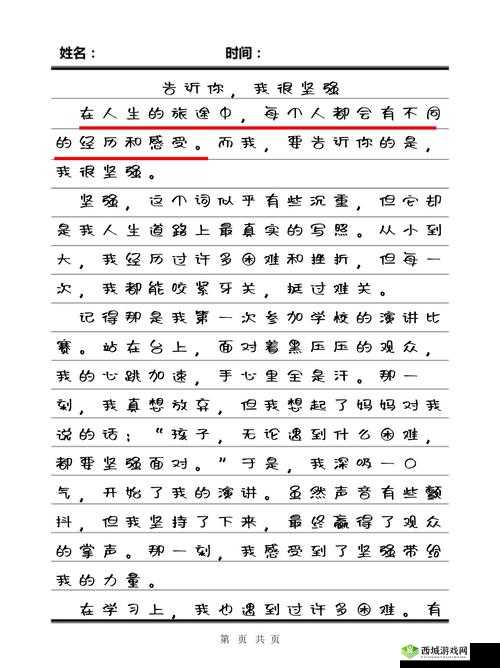 姓名：　　　　　　　时间：
告诉你，我很坚强
在人生的旅途中，每个人都会有不同
的经历和感受。而我，要告诉你的是，
我很坚强。
坚强，这个词似乎有些沉重，但它却
是我人生道路上最真实的写照。从小到
大，我经历过许多困难和挫折，但每一
次，我都能咬紧牙关，挺过难关。
记得那是我第一次参加学校的演讲比
赛。站在台上，面对着黑压压的观众，
我的心跳加速，手心里全是汗。那一
刻，我真想放弃，但我想起了妈妈对我
说的话：“孩子，无论遇到什么困难，
都要坚强面对。”于是，我深吸一口
气，开始了我的演讲。虽然声音有些颤
抖，但我坚持了下来，最终赢得了观众
的掌声。那一刻，我感受到了坚强带给
我的力量。
在学习上，我也遇到过许多困难。有
第 页 共 页
西城游戏网